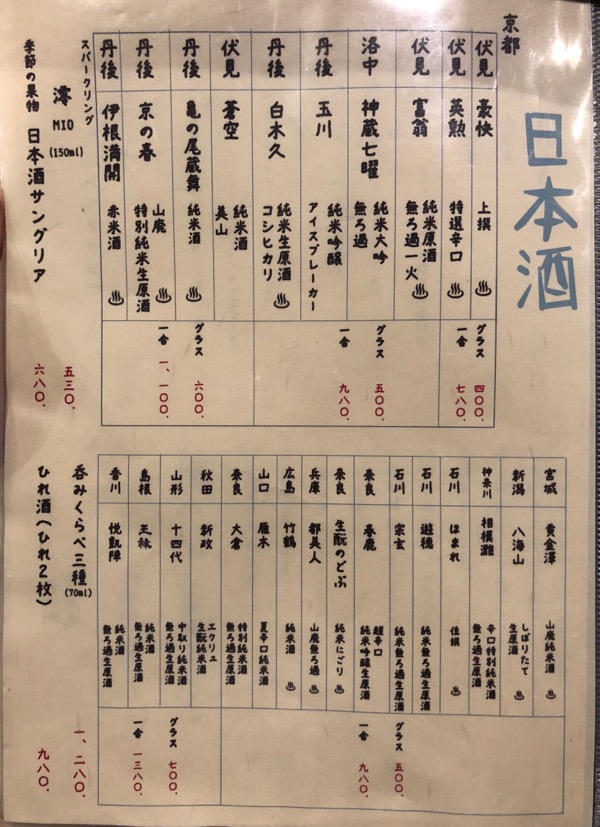 日本酒
京都
伏見 豪快 上撰
伏見 英勲 特選辛口
グラス 四〇〇.
一合 七八〇.
伏見 富翁 純米原酒 無ろ過一火
洛中 神蔵七曜 純米大吟 無ろ過
丹後 玉川 純米吟醸 アイスブレーカー
丹後 白木久 純米生原酒 コシヒカリ
グラス 五〇〇.
一合 九八〇.
伏見 蒼空 純米酒 美山
丹後 亀の尾蔵舞 純米酒
丹後 京の春 山廃 特別純米生原酒
丹後 伊根満開 赤米酒
グラス 六〇〇.
一合 一、一〇〇.
スパークリング
澪 MIO (150ml) 五三〇.
季節の果物 日本酒サングリア 六八〇.
宮城 黄金澤 山廃純米酒
新潟 八海山 しぼりたて 生原酒
神奈川 相模灘 辛口特別純米酒 無ろ過生原酒
石川 ほまれ 佳撰
石川 遊穂 純米無ろ過生原酒
石川 宗玄 純米無ろ過生原酒
奈良 春鹿 超辛口 純米吟醸生原酒
奈良 生酛のどぶ 純米にごり
兵庫 都美人 山廃無ろ過
広島 竹鶴 純米酒
山口 雁木 夏辛口純米酒
奈良 大倉 特別純米酒 無ろ過生原酒
グラス 五〇〇.
一合 九八〇.
秋田 新政 エクリュ 生酛純米酒
山形 十四代 中取り純米酒 無ろ過生原酒
島根 王祿 純米酒 無ろ過生原酒
香川 悦凱陣 純米酒 無ろ過生原酒
グラス 七〇〇.
一合 一三八〇.
呑みくらべ三種 (70ml) 一、二八〇.
ひれ酒(ひれ2枚) 九八〇.